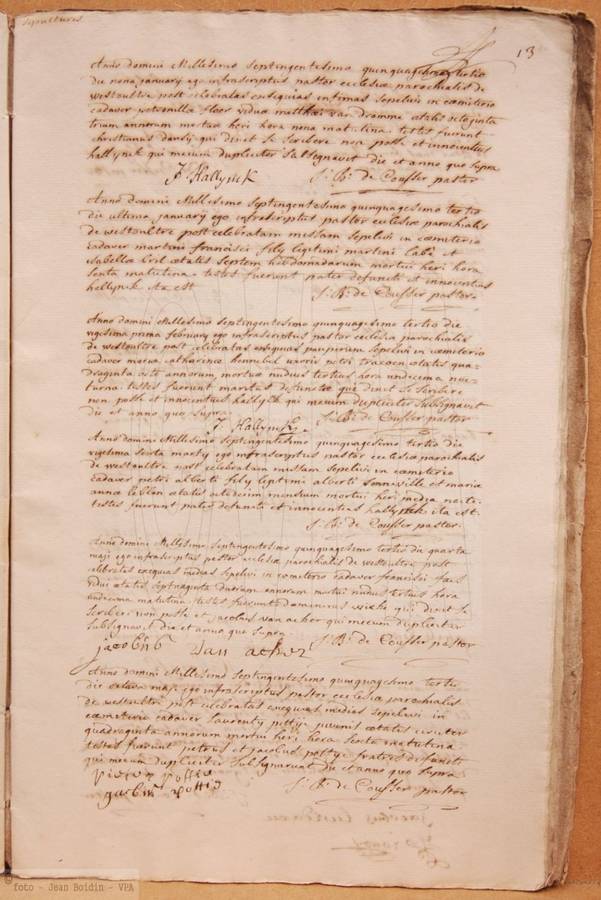 sepultures
13
Anno domini Millesimo septingentesimo quinquagesimo tertio
die nona january ego infrascriptus pastor ecclesiæ parochialis de
westoultre post celebratas exequias infimas sepelivi in cœmeterio
cadaver petronilla floor vidua matthæi van dromme ætatis octoginta
trium annorum mortua heri hora nona matutina testes fuerunt
christianus qui dixit se scribere non posse et innocentius
hallynck qui mecum dupliciter subsignavit die et anno que supra
J Hallynck
J: B: de Cousser pastor
Anno domini Millesimo septingentesimo quinquagesimo tertio
die ultima january ego infrascriptus pastor ecclesiæ parochialis
de westoultre post celebratam missam sepelivi in cœmeterio
cadaver martini francisci fily legitimi martini labe et
isabellæ ætatis septem hebdomadarum mortui heri hora
sexta matutina testes fuerunt pater defuncti et innocentius
hallynck ita est
J: B: de Cousser pastor
Anno domini Millesimo septingentesimo quinquagesimo tertio die
vigesima prima february ego infrascriptus pastor ecclesia parochialis
de westoultre post celebratas exequias pauperum sepelivi in cœmeterio
cadaver maria catharina uxoris petri ætatis qua=
draginta octo annorum mortua nudius tertius hora undecima noc=
turna testes fuerunt maritus defunctæ qui dixit se scribere
non posse et innocentius hallynck qui mecum dupliciter subsignavit
die et anno que supra
J: B: de Cousser pastor
J Hallynck
Anno domini Millesimo septingentesimo quinquagesimo tertio die
vigesima sexta marty ego infrascriptus pastor ecclesiæ parochialis
de westoultre post celebratam missam sepelivi in cœmeterio
cadaver petri alberti fily legitimi alberti sonneville et maria
anna leblon ætatis octodecim mensium mortui heri media nocte
testes fuerunt pater defuncti et innocentius hallynck ita est
J: B: de Cousser pastor
Anno domini Millesimo septingentesimo quinquagesimo tertio die quarta
maji ego infrascriptus pastor ecclesiæ parochialis de westoultre post
celebratas exequias medias sepelivi in cœmeterio cadaver francisci
vidui ætatis septuaginta duorum annorum mortui nudius tertius hora
undecima matutina testes fuerunt dominicus qui dixit se
scribere non posse et jacobus van acker qui mecum dupliciter
subsignavit die et anno que supra
J: B: de Cousser pastor
jacobus van acker
Anno domini Millesimo septingentesimo quinquagesimo tertio
die octava maji ego infrascriptus pastor ecclesiæ parochialis
de westoultre post celebratas exequias medias sepelivi in
cœmeterio cadaver laurenty juvenis ætatis circiter
quadraginta annorum mortui heri hora sexta matutina
testes fuerunt petrus et jacobus fratres defuncti
qui mecum dupliciter subsignarunt die et anno quo supra
J: B: de Cousser pastor
© foto - Jean Boidin - VPA